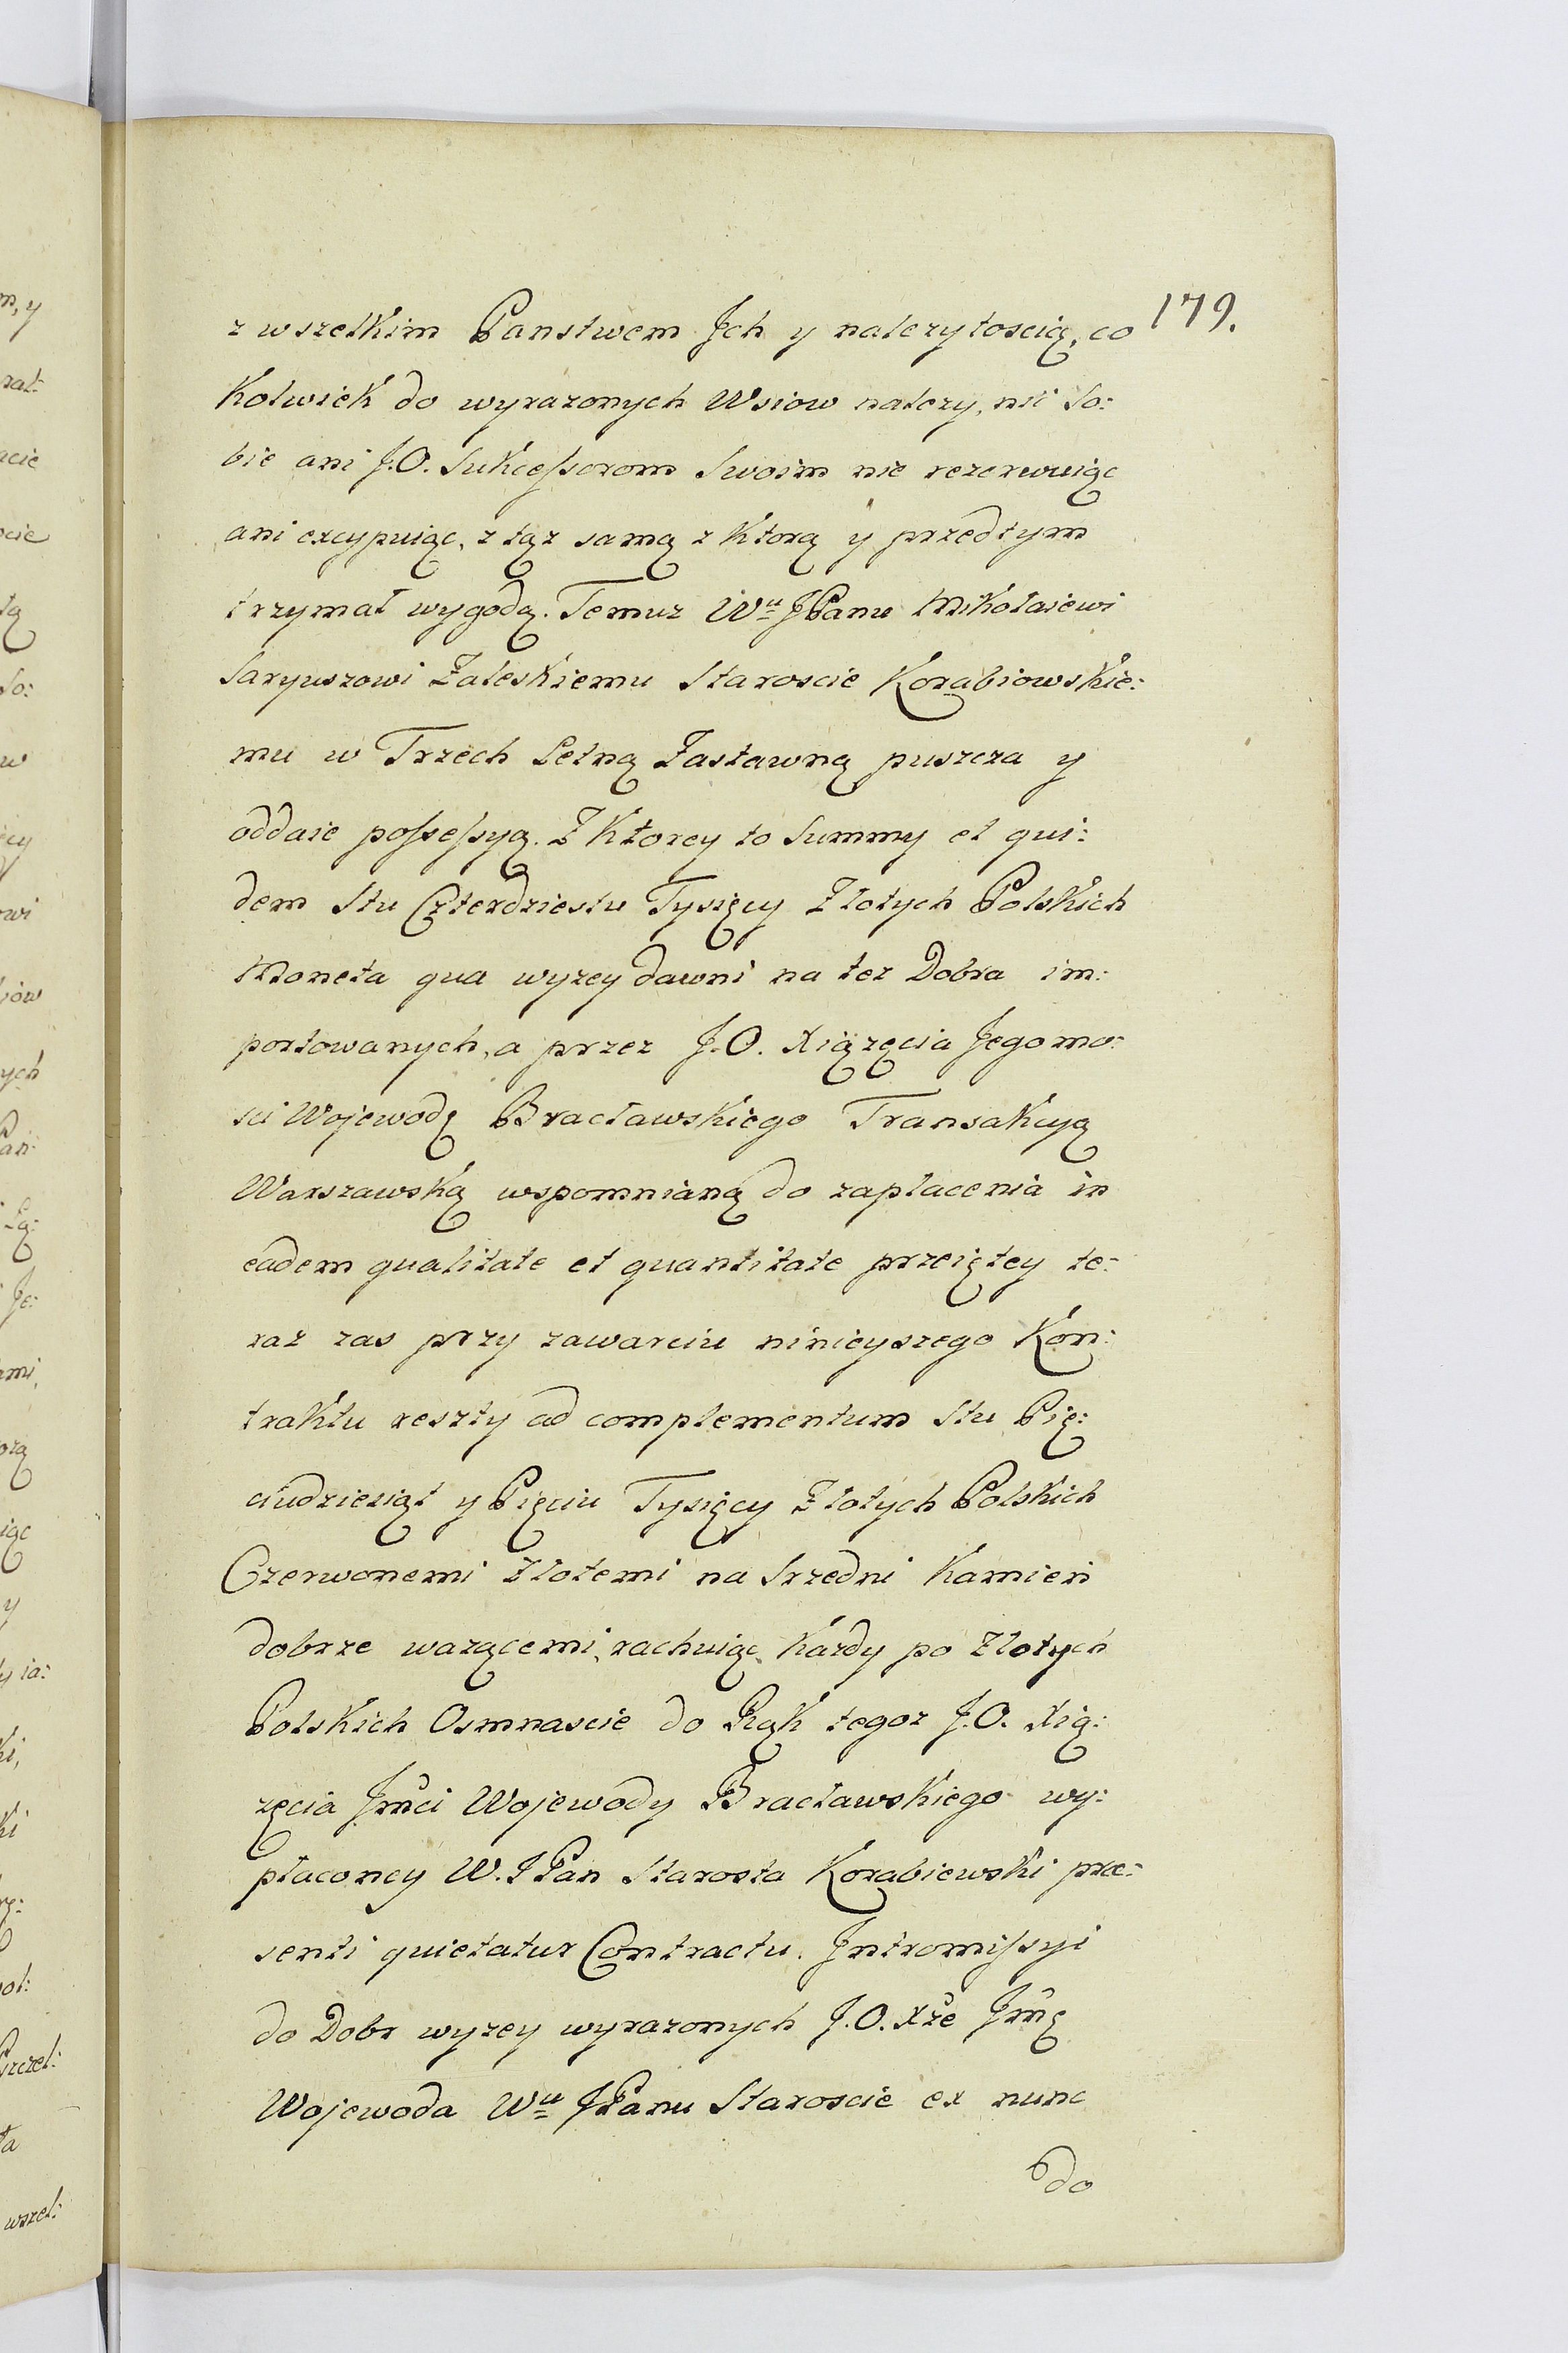 179.
z wszelkim Panstwem Jch y nalezytoscią, co
Kolwiek do wyrazonych Wsiow nalezy, nic So:
bie ani J.O. Sukcessorom Swoim nie rezerwuiąc
ani excypuiąc, z tąz samą z Ktorą y przedtym
trzymał wygodą. Temuz Wu JPanu Mikołaiewi
Saryuszowi Zaleskiemu Staroscie Korabiowskie:
mu w Trzech Letną Zastawną puszcza y
oddaie possessyą. Z Ktorey to Summy et qui:
dem Stu Czterdziestu Tysięcy Złotych Polskich
Moneta qua wyzey dawni na tez Dobra im:
portowanych, a przez J.O. Xiązęcia Jegomo:
sci Wojewodę Bracławskiego Transakcyą
Warszawską wspomnianą do zapłacenia in
eadem qualitate et quantitate przeiętey te:
raz zas przy zawarciu ninieyszego Kon:
traktu reszty ad complementum Stu Pię:
ciudziesiąt y Pięciu Tysięcy Złotych Polskich
Czerwonemi Złotemi na Srzedni Kamień
dobrze wazącemi, rachuiąc Kázdy po Złotych
Polskich Osmnascie do Rąk tegoz J.O. Xią:
zęcia Jmci Wojewody Bracławskiego wy:
płaconey W. JPan Starosta Korabiewski præ:
senti quietatur Contractu. Jntromissyi
do Dobr wyzey wyrazonych J.O. Xże Jmę
Wojewoda Wu JPanu Staroscie ex nunc
do